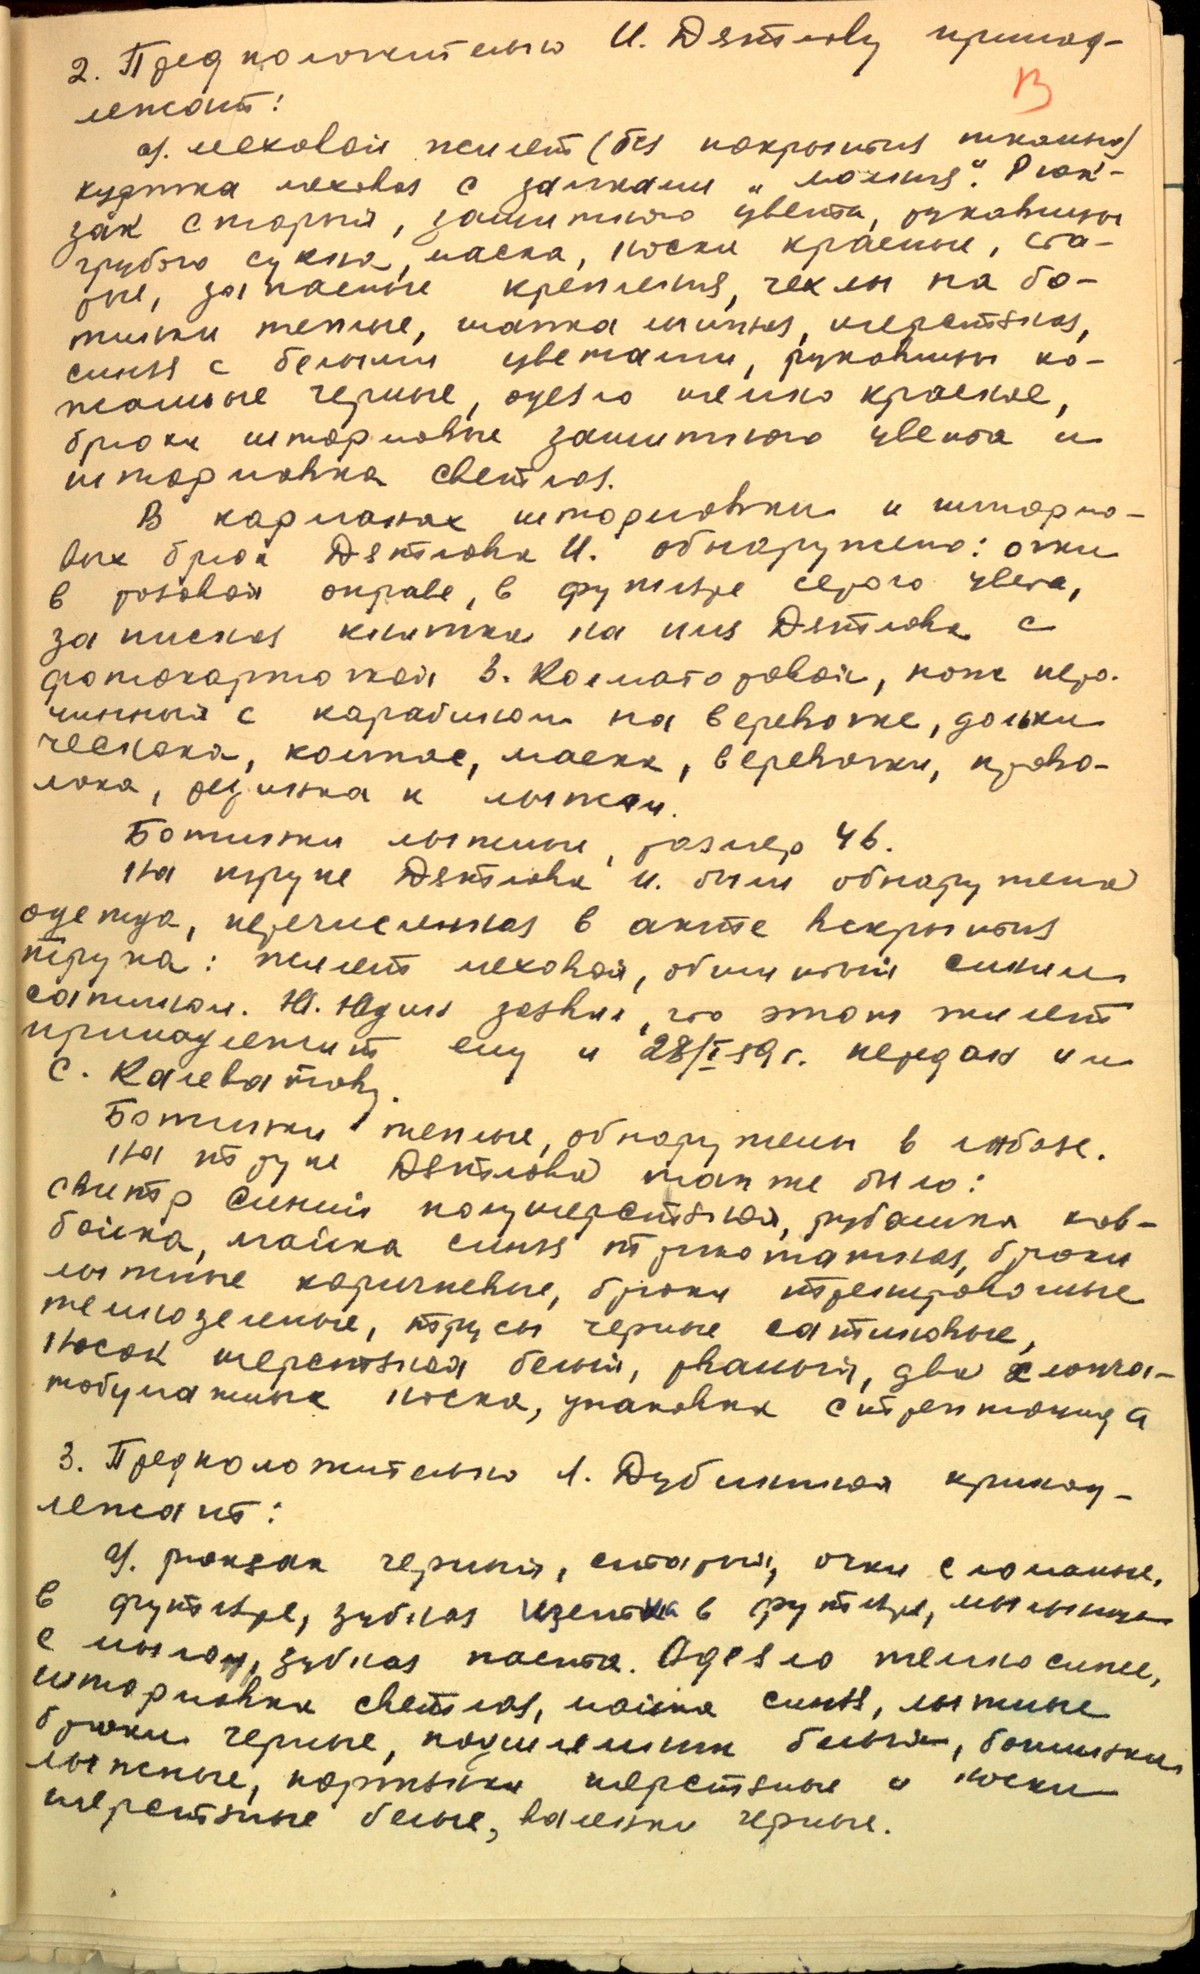 2. Предположительно И. Дятлову принад-
13
лежат:
а). меховой жилет (без покрытия тканью)
куртка меховая с замками „молния". Рюк-
зак старый, защитного цвета, рукавицы
грубого сукна, маска, носки красные, ста-
рые, запасные крепления, чехлы на бо-
тинки теплые, шапка лыжная, шерстяная,
синяя с белыми цветами, рукавицы ко-
жаные черные, одеяло темно красное,
брюки штормовые защитного цвета и
штормовка светлая.
В карманах штормовки и штормо-
вых брюк Дятлова И. обнаружено: очки
в роговой оправе, в футляре серого цвета,
записная книжка на имя Дятлова с
фотокарточкой З. Колмогоровой, нож перо-
чинный с карабином на веревочке, дольки
чеснока, компас, маска, веревочки, прово-
лока, резинка к лыжам.
Ботинки лыжные, размер 46.
На трупе Дятлова И. была обнаружена
одежда, перечисленная в акте вскрытия
трупа: жилет меховой, обшитый синим
сатином. Ю. Юдин заявил, что этот жилет
принадлежит ему и 28/I 59 г. передан им
С. Колеватову.
Ботинки теплые, обнаружены в лабазе.
На трупе Дятлова также было:
свитр синий полушерстяной, рубашка ков-
бойка, майка синяя трикотажная, брюки
лыжные коричневые, брюки тренировочные
темнозеленые, трусы черные сатиновые,
носок шерстяной белый, рваный, два хлопча-
тобумажных носка, упаковка стрептоцида
3. Предположительно Л. Дубининой принад-
лежат:
а). рюкзак черный, старый, очки сломаные,
в футляре, зубная щетка в футляре, мыльница
с мылом, зубная паста. Одеяло темно синее,
штормовка светлая, майка синяя, лыжные
брюки черные, подшлемник белый, ботинки
лыжные, портянки шерстяные и носки
шерстяные белые, валенки черные.